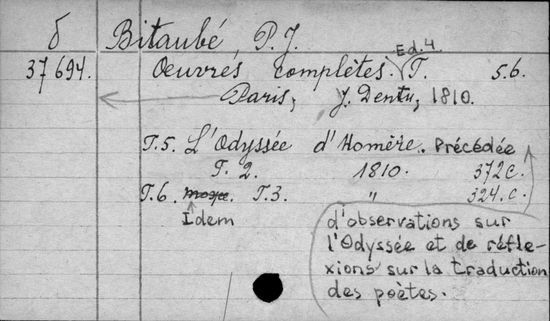 б Bitaubé, P. J.
37 694. Oeuvres complètes. Ed. 4. T. 5.6.
Paris, J. Dentu, 1810.
T.5. L'Odyssée d'Homère. Précédée
T. 2. 1810. 372 c.
T.6. тоже. T.3. " 324. c.
Idem
d'observations sur
l'Odyssée et de réfle-
xions sur la traduction
des poètes.